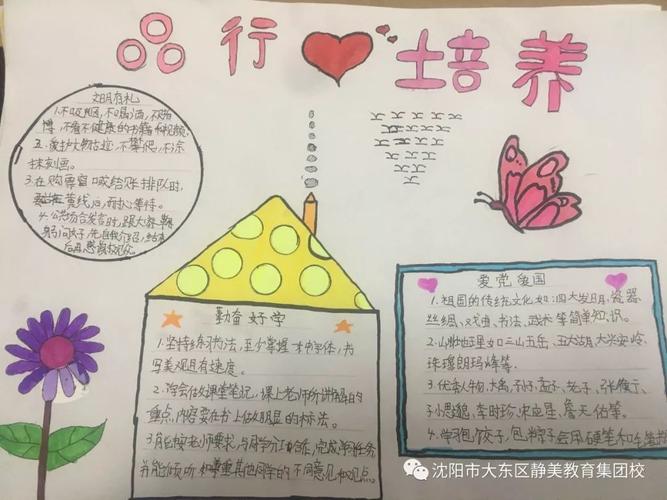 品行培养
文明有礼
1.不吸烟,不喝酒,不赌
博,不看不健康的书籍和视频.
爱护文物古迹,不攀爬,不涂
抹刻画。
3.在购票窗口或结账排队时,
黄线后,耐心等待。
4.公共场合发言时,跟大家鞠
躬问好,先自我介绍,结束
后再感谢观众
勤奋好学
1.坚持练习书法,至少掌握 本书字体,书
写美观且有速度。
2.学会做课堂笔记,课上老师所讲解的
重点,内容要在书上做明显的标法。
3.能按老师要求,与同学分工合作,完成学习任务
并能倾听,如尊重其他同学的不同意见和观点
爱党爱国
1.祖国的传统文化如:四大发明,瓷器
丝绸、戏曲、书法、武术等简单知识。
2.山壮地理如三山五岳、五大湖,大兴安岭,
珠穆朗玛峰等。
3.优秀人物,大禹,孔子,孟子、老子、张衡、
子思聪,李时珍,宋应星、詹天佑等。
4.学习包饺子,包粽子会用硬笔和
沈阳市大东区静美教育集团校